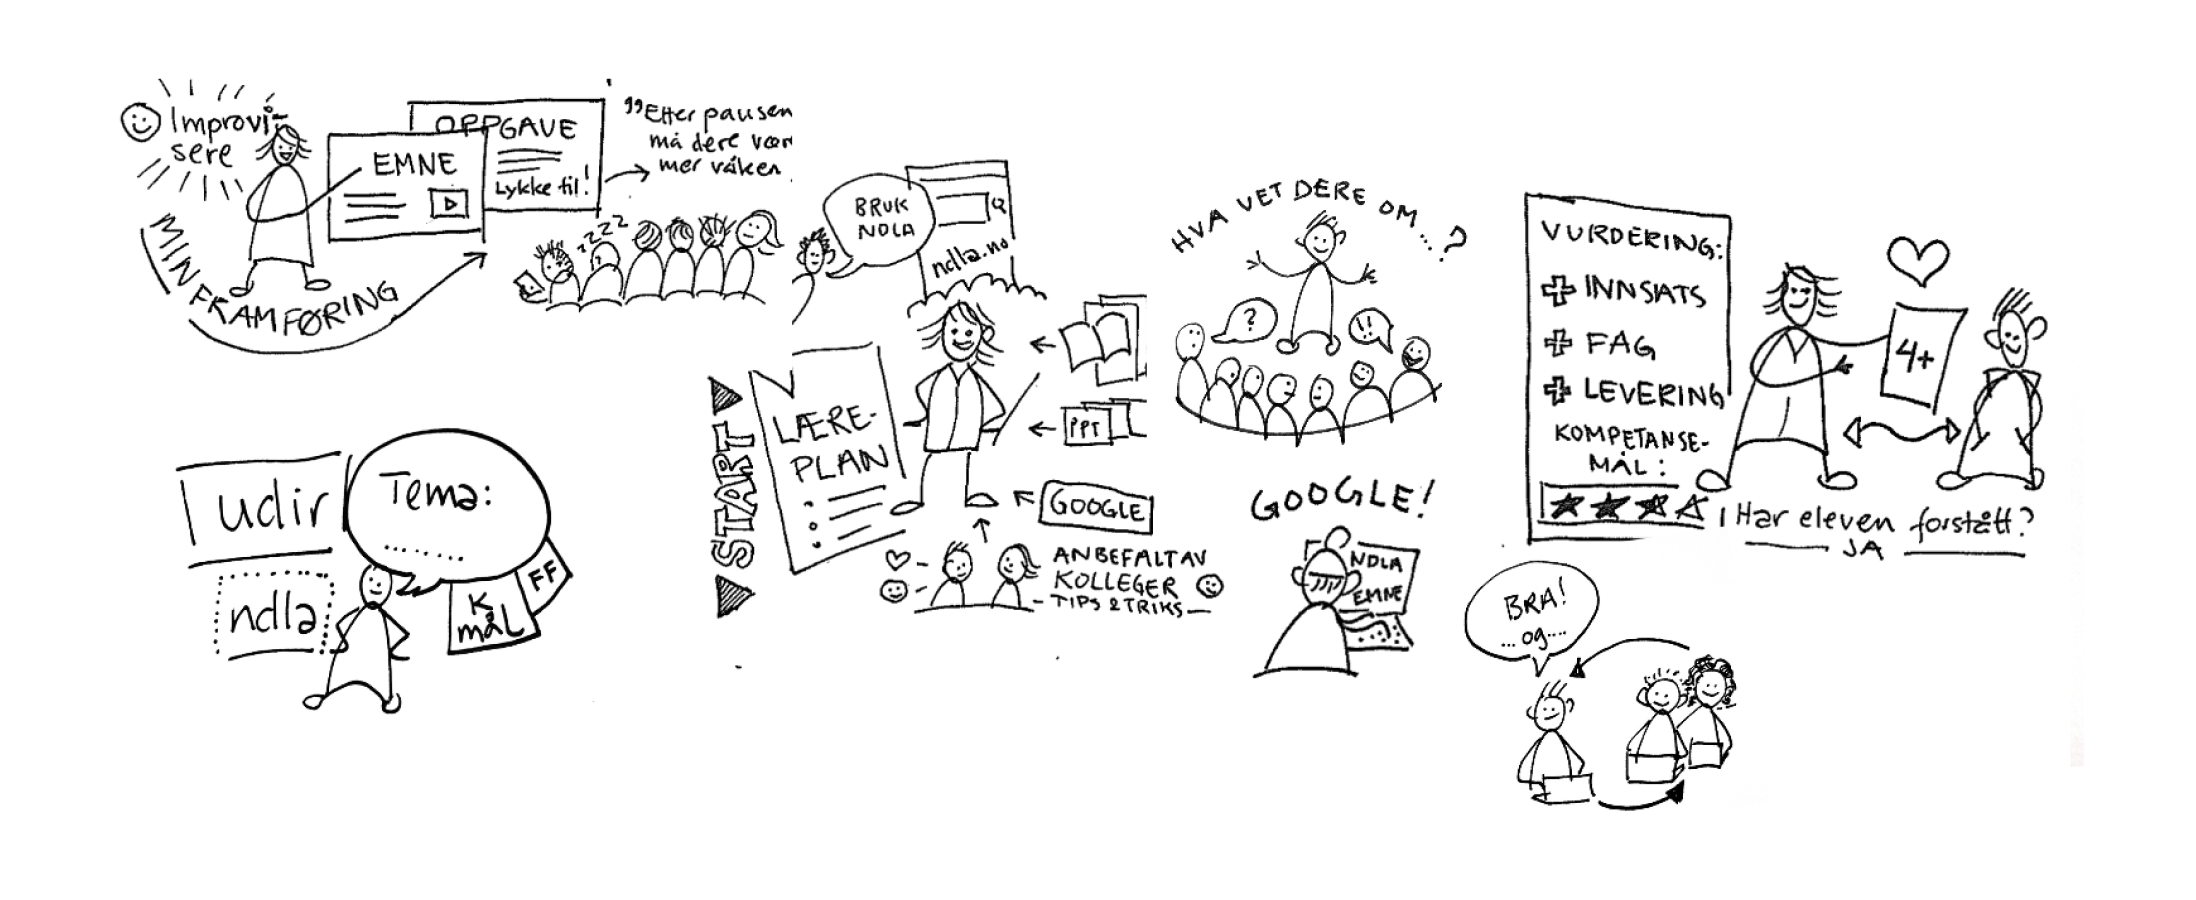 Improvi-
sere
EMNE
OPPGAVE
Lykke til!
"Etter pausen
må dere vær
mer våken
MIN FRAMFØRING
zzzz
udir
ndla
Tema:
........
K
mål
FF
START
LÆRE-
PLAN
BRUK
NDLA
ndla.no
PPT
GOOGLE
ANBEFALT AV
KOLLEGER
- TIPS & TRIKS -
HVA VET DERE OM...?
?
!!
GOOGLE!
NDLA
EMNE
VURDERING:
+ INNSATS
+ FAG
+ LEVERING
KOMPETANSE-
MÅL:
4+
Har eleven forstått?
JA
BRA!
...og....